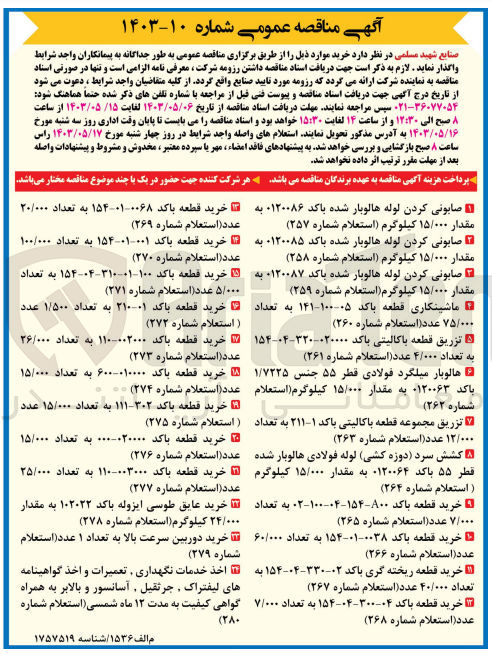 آگهی مناقصه عمومی شماره ۱۰-۱۴۰۳
صنایع شهید مسلمی در نظر دارد خرید موارد ذیل را از طریق برگزاری مناقصه عمومی به طور جداگانه به پیمانکاران واجد شرایط
واگذار نماید . لازم به ذکر است جهت دریافت اسناد مناقصه داشتن رزومه شرکت ، معرفی نامه الزامی است و تنها در صورتی اسناد
مناقصه به نماینده شرکت ارائه می گردد که رزومه مورد تایید صنایع واقع گردد. از کلیه متقاضیان واجد شرایط ، دعوت می شود
از تاریخ درج آگهی جهت دریافت اسناد مناقصه و پیوست فنی قبل از مراجعه با شماره تلفن های ذکر شده حتماً هماهنگ شود:
۳۶۰۷۷۰۵۴-۰۲۱ سپس مراجعه نمایند. مهلت دریافت اسناد مناقصه از تاریخ ۱۴۰۳/۰۵/۰۶ لغایت ۱۴۰۳/۰۵/۱۵ از ساعت
۸ صبح الی ۱۲:۳۰ و از ساعت ۱۴ لغایت ۱۵:۳۰ خواهد بود و اسناد مناقصه را می بایست تا پایان وقت اداری روز سه شنبه مورخ
۱۴۰۳/۰۵/۱۶ به آدرس مذکور تحویل نمایند. استعلام های واصله واجد شرایط در روز چهار شنبه مورخ ۱۴۰۳/۰۵/۱۷ راس
ساعت ۸ صبح بازگشایی و بررسی خواهد شد. به پیشنهادهای فاقد امضاء ، مهر یا سپرده معتبر ، مخدوش و مشروط و پیشنهادات واصله
بعد از مهلت مقرر ترتیب اثر داده نخواهد شد.
پرداخت هزینه آگهی مناقصه به عهده برندگان مناقصه می باشد.
هر شرکت کننده جهت حضور در یک یا چند موضوع مناقصه مختار می‌باشد.
۱ صابونی کردن لوله هالوبار شده باکد ۰۱۲۰۰۸۶ به
مقدار ۱۵/۰۰۰ کیلوگرم (استعلام شماره ۲۵۷)
۲ صابونی کردن لوله هالوبار شده باکد ۰۱۲۰۰۸۵ به
مقدار ۱۵/۰۰۰ کیلوگرم (استعلام شماره ۲۵۸)
۳ صابونی کردن لوله هالوبار شده باکد ۰۱۲۰۰۸۷ به
مقدار ۱۵/۰۰۰ کیلوگرم(استعلام شماره ۲۵۹)
۴ ماشینکاری قطعه باکد ۰۵-۱۰۰-۱۴۱ به تعداد
۷۵/۰۰۰ عدد(استعلام شماره ۲۶۰)
۵ تزریق قطعه باکالیتی باکد ۰۲۰۰۰۰-۳۲-۰۴-۱۵۴
به تعداد ۴/۰۰۰ عدد(استعلام شماره ۲۶۱)
۶ هالوبار میلگرد فولادی قطر ۵۵ جنس ۱/۷۲۲۵
باکد ۰۱۲۰۰۶۳ به مقدار ۱۵/۰۰۰ کیلوگرم(استعلام
شماره ۲۶۲)
۷ تزریق مجموعه قطعه باکالیتی باکد ۱-۲۱۱ به تعداد
۱۲/۰۰۰ عدد(استعلام شماره ۲۶۳)
۸ کشش سرد (دوزه کشی) لوله فولادی هالوبار شده
قطر ۵۵ باکد ۰۱۲۰۰۶۴ به مقدار ۱۵/۰۰۰ کیلوگرم
( استعلام شماره ۲۶۴)
۹ خرید قطعه باکد ۰۲-۱۰۰-۰۴-۱۵۴-A۰۰ به تعداد
۷/۰۰۰ عدد(استعلام شماره ۲۶۵)
۱۰ خرید قطعه باکد ۰۰۳۸-۰۱-۱۵۴ به تعداد ۶۰/۰۰۰
عدد(استعلام شماره ۲۶۶)
۱۱ خرید قطعه ریخته گری باکد ۰۲-۳۳۰-۰۴-۱۵۴ به
تعداد ۴۰/۰۰۰ عدد(استعلام شماره ۲۶۷)
۱۲ خرید قطعه باکد ۰۴-۳۰۰-۰۴-۱۵۴ به تعداد ۷/۰۰۰
عدد(استعلام شماره ۲۶۸)
۱۳ خرید قطعه باکد ۰۰۶۸-۰۱-۱۵۴ به تعداد ۲۰/۰۰۰
عدد(استعلام شماره ۲۶۹)
۱۴ خرید قطعه باکد ۰۰۱-۰۱-۱۵۴ به تعداد ۱۰۰/۰۰۰
عدد(استعلام شماره ۲۷۰)
۱۵ خرید قطعه باکد ۱۰۰-۰۱-۳۱۰-۰۴-۱۵۴ به تعداد
۵/۰۰۰ عدد(استعلام شماره ۲۷۱)
۱۶ خرید قطعه باکد ۰۱-۲۱۰ به تعداد ۱/۵۰۰ عدد
( استعلام شماره ۲۷۲)
۱۷ خرید قطعه باکد ۰۰۲۰۰-۱۱۰ به تعداد ۲۶/۰۰۰
عدد(استعلام شماره ۲۷۳)
۱۸ خرید قطعه باکد ۶۰۰۰-۰۱۰۰۰ به تعداد ۱۵/۰۰۰
عدد(استعلام شماره ۲۷۴)
۱۹ خرید قطعه باکد ۳۰۲-۱۱۱ به تعداد ۱۵/۰۰۰ عدد
( استعلام شماره ۲۷۵)
۲۰ خرید قطعه باکد ۰۲۰۰۰۰-۰۰۰ به تعداد ۱۵/۰۰۰
عدد(استعلام شماره ۲۷۶)
۲۱ خرید قطعه باکد ۰۰۳۰۰۰-۱۱۰ به تعداد ۲۵/۰۰۰
عدد(استعلام شماره ۲۷۷)
۲۲ خرید عایق طوسی ایزوله باکد ۱۰۲۰۲۲ به مقدار
۲۴/۰۰۰ کیلوگرم(استعلام شماره ۲۷۸)
۲۳ خرید دوربین سرعت بالا به تعداد ۱ عدد(استعلام
شماره ۲۷۹)
۲۴ اخذ خدمات نگهداری ، تعمیرات و اخذ گواهینامه
های لیفتراک ، جرثقیل ، آسانسور و بالابر به همراه
گواهی کیفیت به مدت ۱۲ ماه شمسی(استعلام شماره
۲۸۰)
م‌الف۱۵۳۶/شناسه ۱۷۵۷۵۱۹